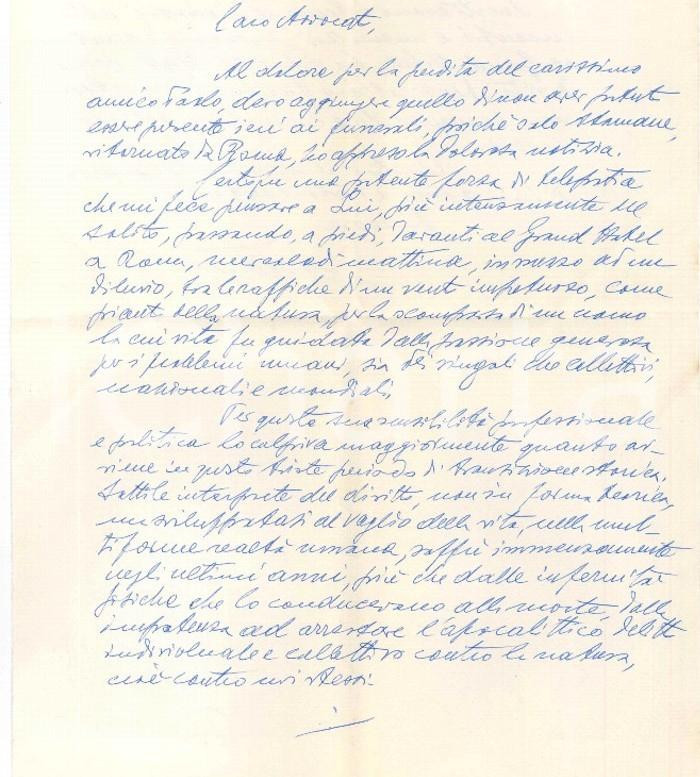 Caro Avvocato,
Al dolore per la perdita del carissimo
amico Paolo, devo aggiungere quello di non aver potuto
essere presente ieri ai funerali, poiché solo stamane,
ritornato da Roma, ho appreso la dolorosa notizia.
Certo fu una potente forza di telepatia
che mi fece pensare a Lui, più intensamente del
solito, passando, a piedi, davanti al Grand Hotel
a Roma, mercoledì mattina, in mezzo ad un
diluvio, tra le raffiche di un vento impetuoso, come
pianto della natura, per la scomparsa di un uomo
la cui vita fu guidata dalla passione generosa
per i problemi umani, sia dei singoli che collettivi,
nazionali e mondiali.
Per questa sua sensibilità professionale
e politica lo colpiva maggiormente quanto av-
viene in questo triste periodo di transizione storica.
Sottile interprete del diritto, non in forma teorica,
ma sviluppatasi al vaglio della vita, nella mul-
tiforme realtà umana, soffrì immensamente
negli ultimi anni, più che dalle infermità
fisiche che lo conducevano alla morte, dalla
impotenza ad arrestare l'apocalittico delitto
individuale e collettivo contro la natura,
cioè contro noi stessi.